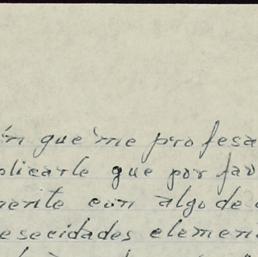 ón que me profesa
plicarle que por fav
mente con algo de
esecidades elemen